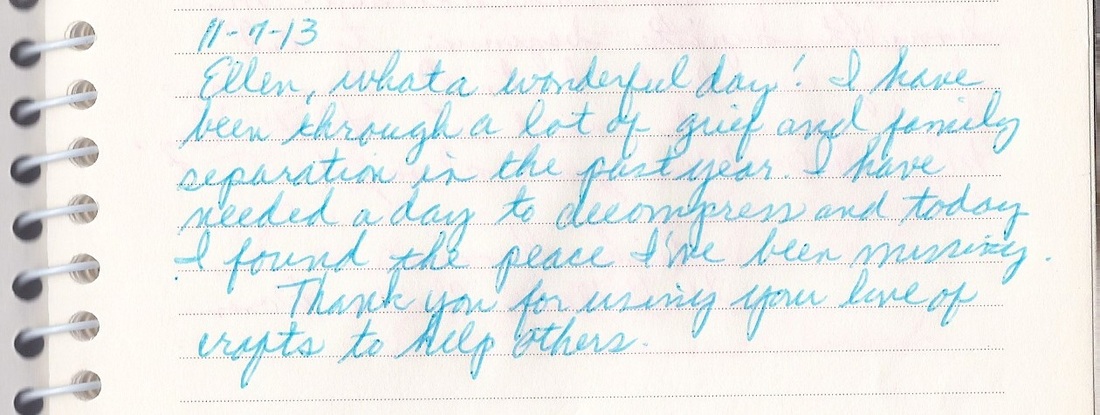 11-7-13
Ellen, what a wonderful day! I have
been through a lot of grief and family
separation in the past year. I have
needed a day to decompress and today
I found the peace I've been missing.
Thank you for using your love of
crafts to help others.